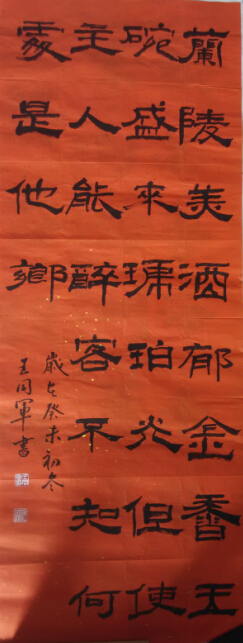 蘭陵美酒郁金香玉
碗盛來琥珀光但使
主人能醉客不知何
處是他鄉
歲在癸未初冬
王同軍書